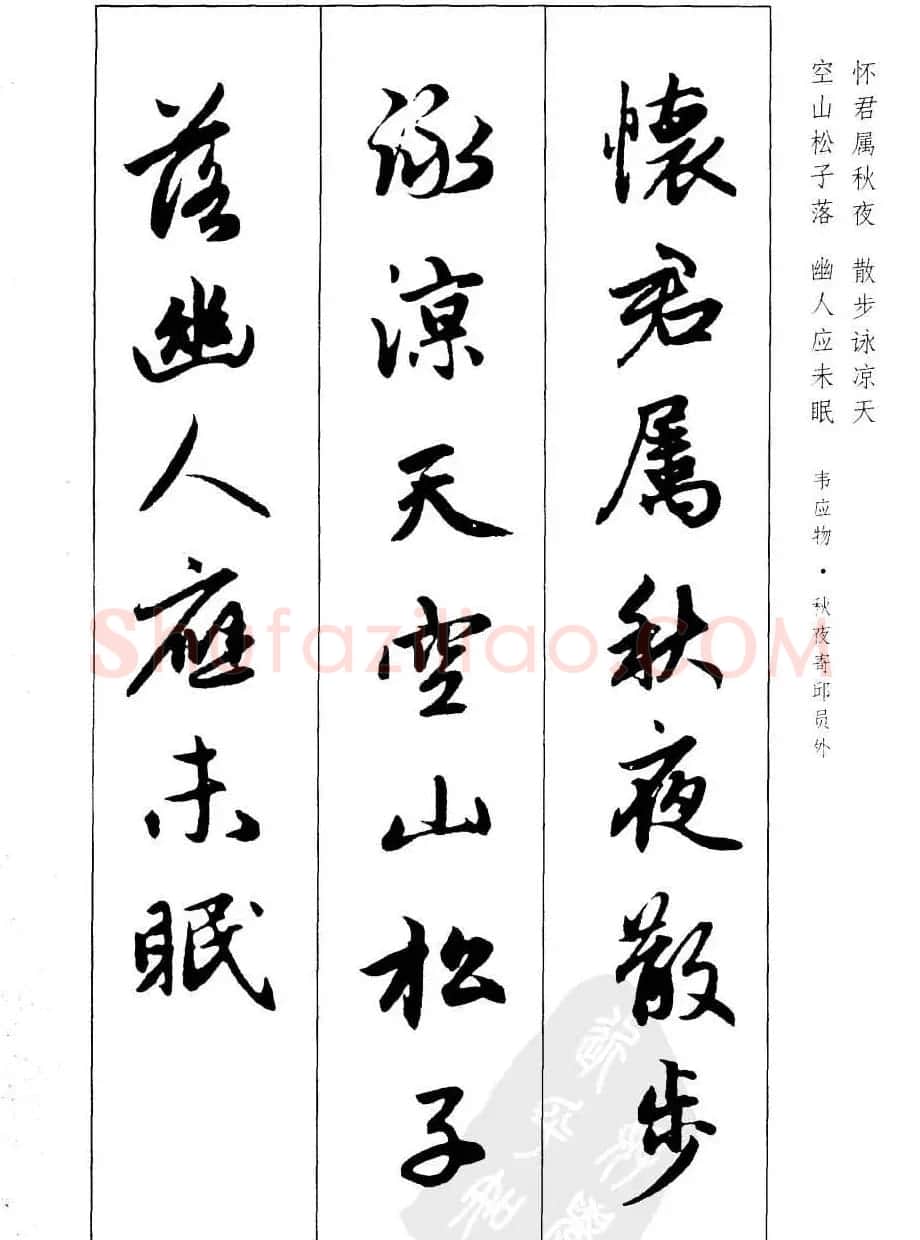 怀君属秋夜 散步咏凉天
空山松子落 幽人应未眠
韦应物·秋夜寄邱员外
懷君屬秋夜散步
詠涼天空山松子
落幽人應未眠
Shufaziliao.COM